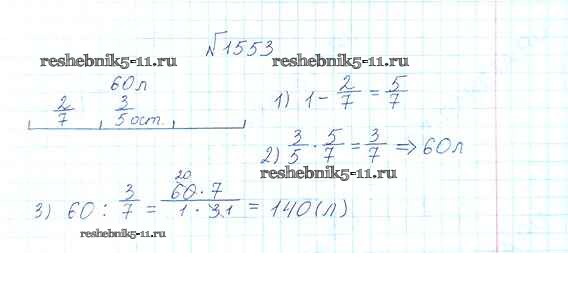 №1553
reshebnik5-11.ru
reshebnik5-11.ru
60л
2/7 3/5 ост.
1) 1 - 2/7 = 5/7
2) 3/5 · 5/7 = 3/7 => 60л
reshebnik5-11.ru
3) 60 : 3/7 = 60 20 · 7 / 1 · 3 1 = 140(л)
reshebnik5-11.ru